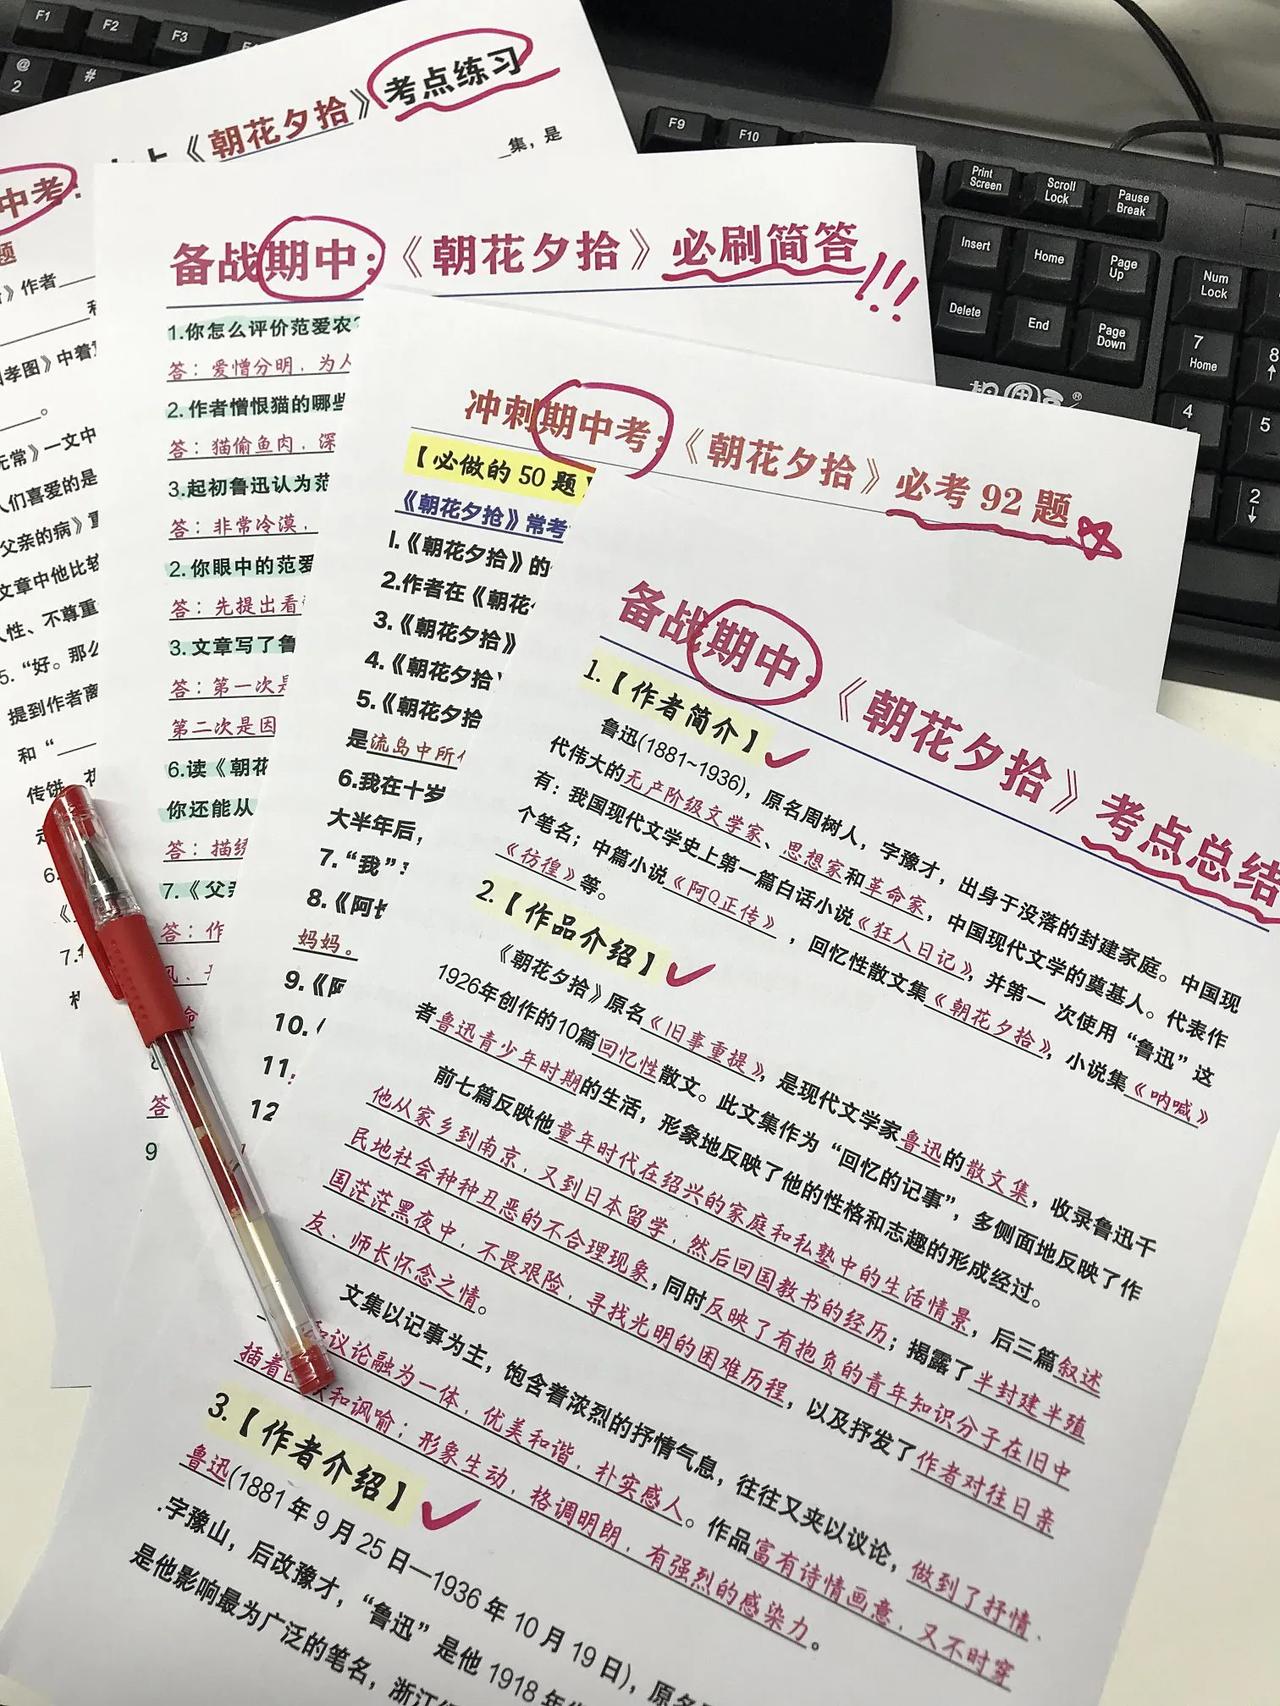 F1
F2
F3
@
2
#
F9
F10
Print
Screen
Scroll
Lock
Pause
Break
Insert
Home
Page
Up
Num
Lock
Delete
End
Page
Down
7
Home
8
4
5
2
《朝花夕拾》考点练习
中考:
集，是
题
》作者
孝图》中着
无常》一文中
人们喜爱的是
父亲的病》
文章中他比较
人性、不尊重
5.“好。那么
提到作者离
和“
传饼
6.
7.
备战期中:《朝花夕拾》必刷简答!!!
1.你怎么评价范爱农?
答：爱憎分明，为人
2.作者憎恨猫的哪些
答：猫偷鱼肉，深
3.起初鲁迅认为范
答：非常冷漠，
2.你眼中的范爱
答：先提出看
3.文章写了鲁
答：第一次是
第二次是因
6.读《朝花
你还能从
答：描绘
7.《父亲
答：作
答
9
冲刺期中考:《朝花夕拾》必考 92 题
【必做的 50 题】
《朝花夕拾》常考
1.《朝花夕拾》的
2.作者在《朝花
3.《朝花夕拾》
4.《朝花夕拾》
5.《朝花夕拾
是流岛中所
6.我在十岁
大半年后，
7.“我”
8.《阿长
妈妈。
9.《阿
10.
11.
12
备战期中:《朝花夕拾》考点总结
1.【作者简介】
鲁迅(1881~1936)，原名周树人，字豫才，出身于没落的封建家庭。中国现
代伟大的无产阶级文学家、思想家和革命家，中国现代文学的奠基人。代表作
有：我国现代文学史上第一篇白话小说《狂人日记》，并第一 次使用“鲁迅”这
个笔名；中篇小说《阿Q正传》，回忆性散文集《朝花夕拾》，小说集《呐喊》
《彷徨》等。
2.【作品介绍】
《朝花夕拾》原名《旧事重提》，是现代文学家鲁迅的散文集，收录鲁迅于
1926年创作的10篇回忆性散文。此文集作为“回忆的记事”，多侧面地反映了作
者鲁迅青少年时期的生活，形象地反映了他的性格和志趣的形成经过。
前七篇反映他童年时代在绍兴的家庭和私塾中的生活情景，后三篇叙述
他从家乡到南京，又到日本留学，然后回国教书的经历；揭露了半封建半殖
民地社会种种丑恶的不合理现象，同时反映了有抱负的青年知识分子在旧中
国茫茫黑夜中，不畏艰险，寻找光明的困难历程，以及抒发了作者对往日亲
友、师长怀念之情。
文集以记事为主，饱含着浓烈的抒情气息，往往又夹以议论，做到了抒情、
和议论融为一体，优美和谐，朴实感人。作品富有诗情画意，又不时穿
插着和讽喻；形象生动，格调明朗，有强烈的感染力。
3.【作者介绍】
鲁迅(1881 年 9 月 25 日—1936 年 10 月 19 日)，原名
字豫山，后改豫才，“鲁迅”是他 1918 年
是他影响最为广泛的笔名，浙江